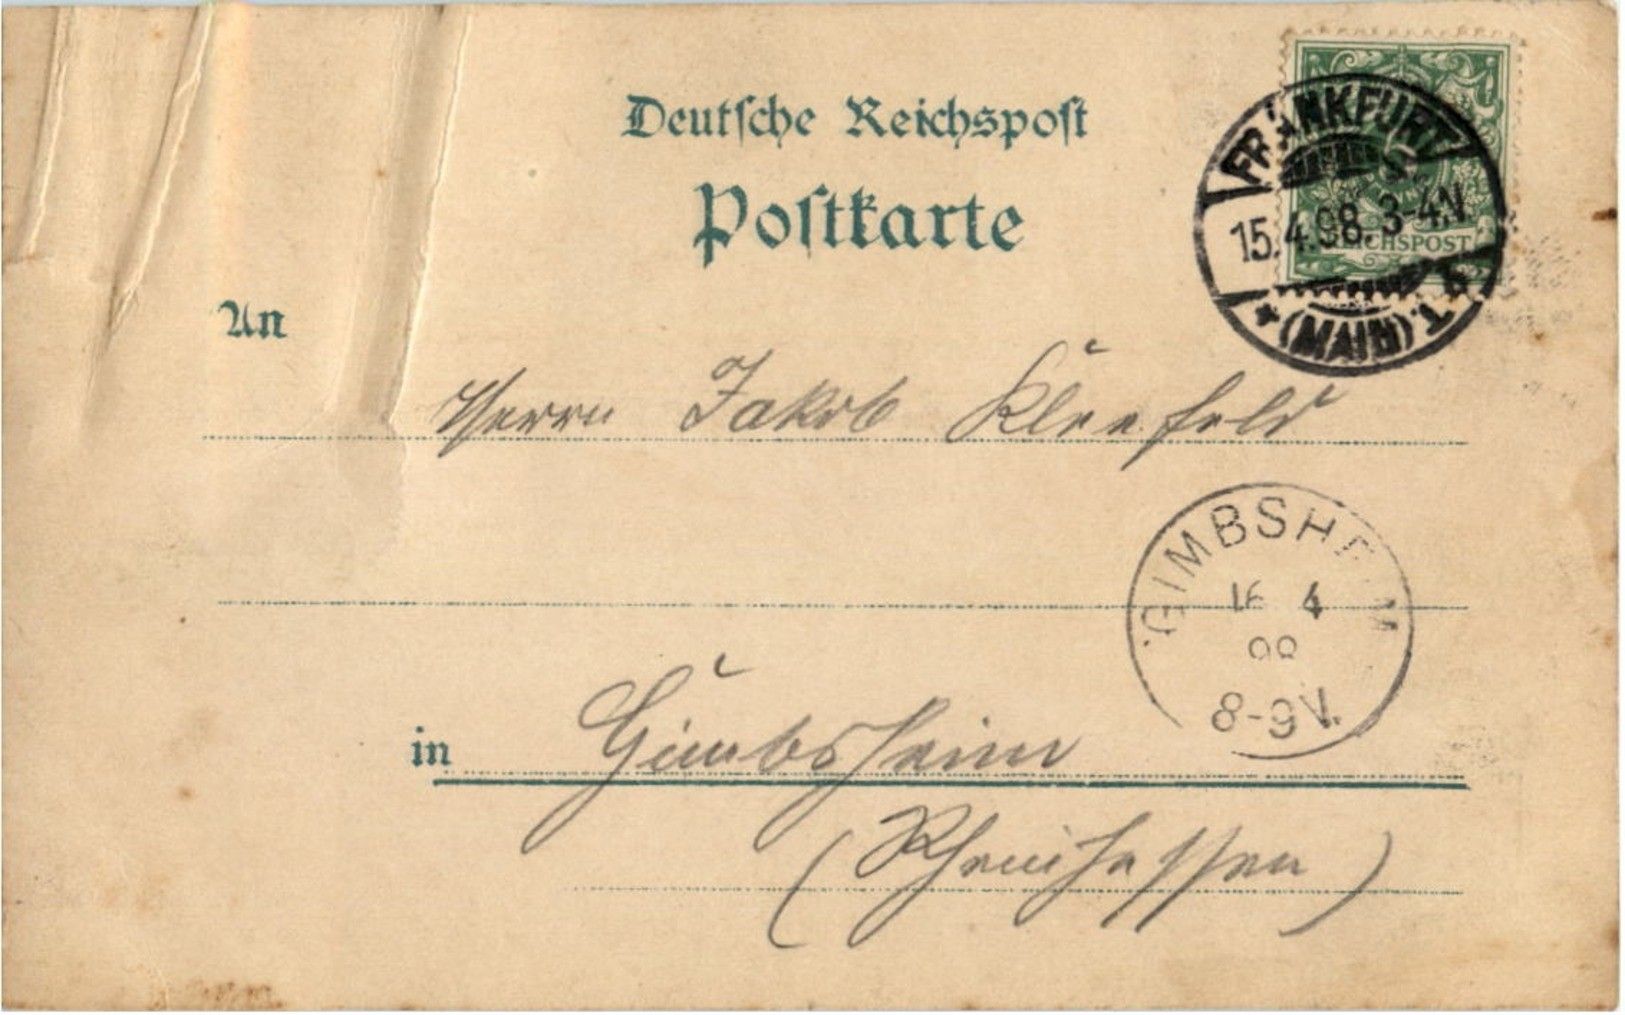 Deutsche Reichspost
Postkarte
FRANKFURT
15.4.98. 3-4N.
REICHSPOST
* (MAIN).1.
An
Herrn Jakob Kleefeld
GIMBSHEIM
16 4
98
8-9V.
in Gimbsheim
(Rheinhessen)